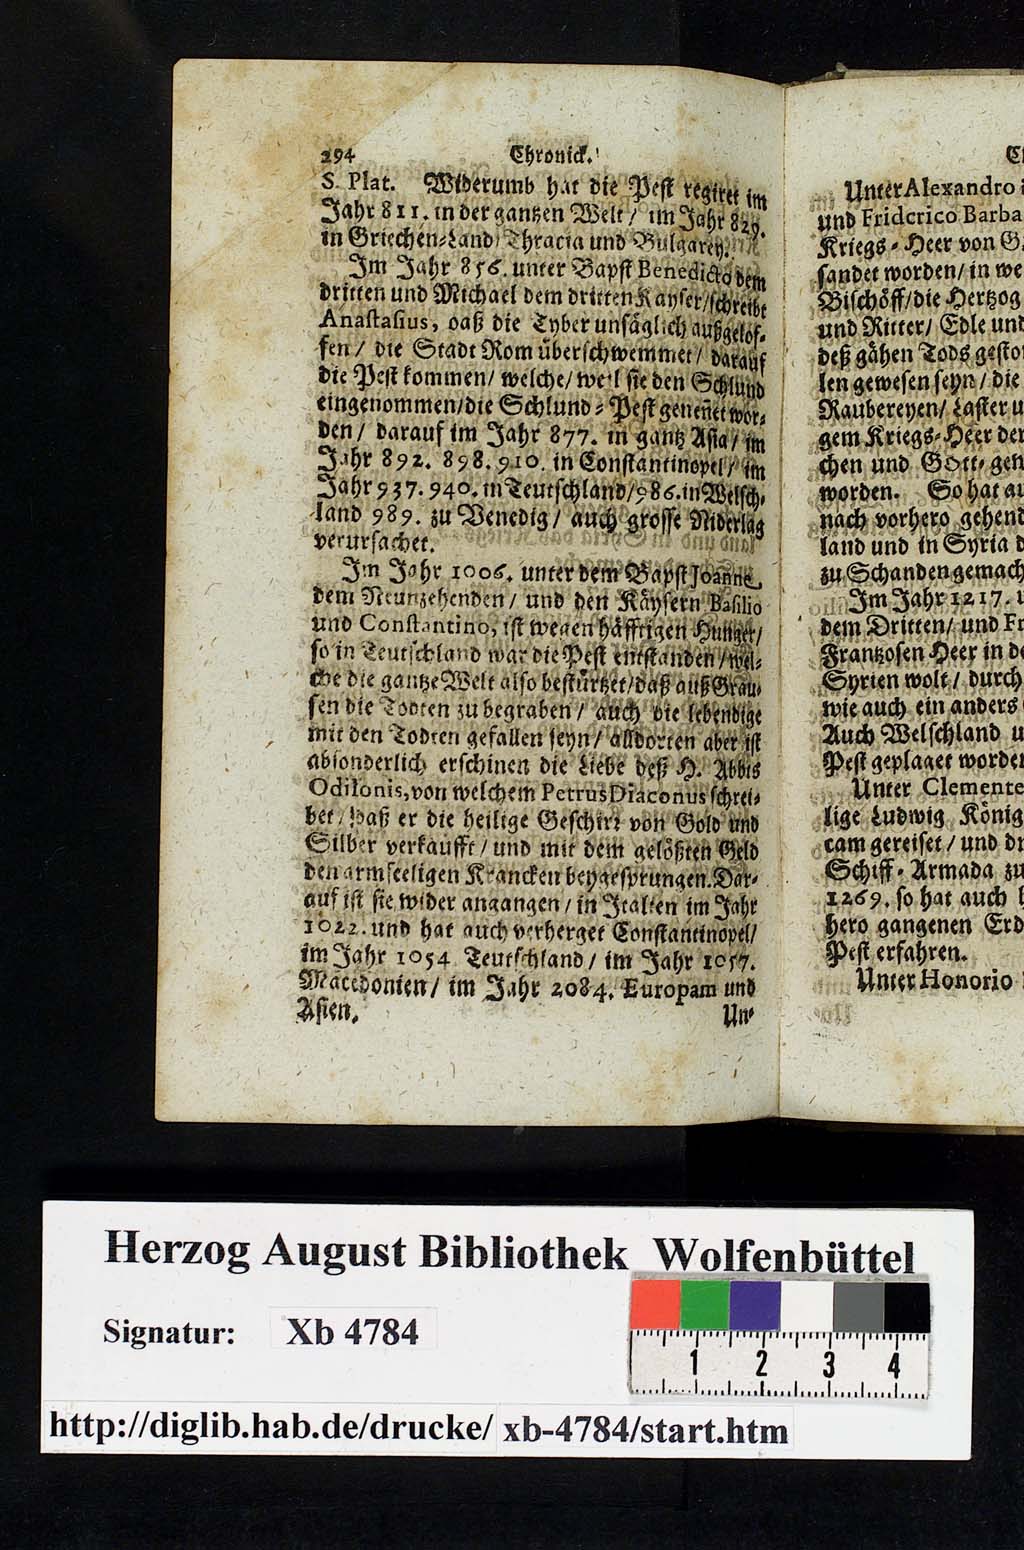 294 Chronick.
S. Plat. Widerumb hat die Pest regiret im
Jahr 811. in der gantzen Welt / im Jahr 829.
in Griechen-Land / Thracia und Bulgarey.
Im Jahr 856. unter Bapst Benedicto dem
dritten und Michael dem dritten Kayser / schreibt
Anastasius, daß die Tyber unsäglich außgelof-
fen / die Stadt Rom überschwemmet / darauf
die Pest kommen / welche / weil sie den Schlund
eingenommen / die Schlund-Pest genennet wor-
den / darauf im Jahr 877. in gantz Asia / im
Jahr 892. 898. 910. in Constantinopel / im
Jahr 937. 940. in Teutschland / 986. in Welsch-
land 989. zu Venedig / auch grosse Niderlag
verursachet.
Im Jahr 1006. unter dem Bapst Joanne
dem Neunzehenden / und den Käysern Basilio
und Constantino, ist wegen häfftigen Hunger /
so in Teutschland war die Pest entstanden / wel-
che die gantze Welt also bestürtzet / daß auß Grau-
sen die Todten zu begraben / auch die lebendige
mit den Todten gefallen seyn / alldorten aber ist
absonderlich erschinen die Liebe deß H. Abbts
Odilonis, von welchem Petrus Diaconus schrei-
bet / daß er die heilige Geschirr von Gold und
Silber verkaufft / und mit dem gelößten Geld
den armseeligen Krancken beygesprungen. Dar-
auf ist sie wider angangen / in Italien im Jahr
1022. und hat auch verherget Constantinopel /
im Jahr 1054 Teutschland / im Jahr 1057.
Macedonien / im Jahr 2084. Europam und
Asien.
Un-
Unter Alexandro
und Friderico Barba
Kriegs-Heer von
sandet worden / in we
Bischöff / die Hertzog
und Ritter / Edle und
deß gähen Tods gesto
len gewesen seyn / die
Raubereyen / Laster u
gem Kriegs-Heer der
chen und Gott-
worden. So hat au
nach vorhero gehend
land und in Syria d
zu Schanden gemach
Im Jahr 1217. u
dem Dritten / und Fr
Frantzosen Heer in de
Syrien wolt / durch
wie auch ein anders
Auch Welschland u
Pest geplaget worden
Unter Clemente
lige Ludwig König
cam gereiset / und dr
Schiff-Armada zu
1269. so hat auch
hero gangenen Erd
Pest erfahren.
Unter Honorio
Herzog August Bibliothek Wolfenbüttel
Signatur: Xb 4784
1 2 3 4
http://diglib.hab.de/drucke/ xb-4784/start.htm